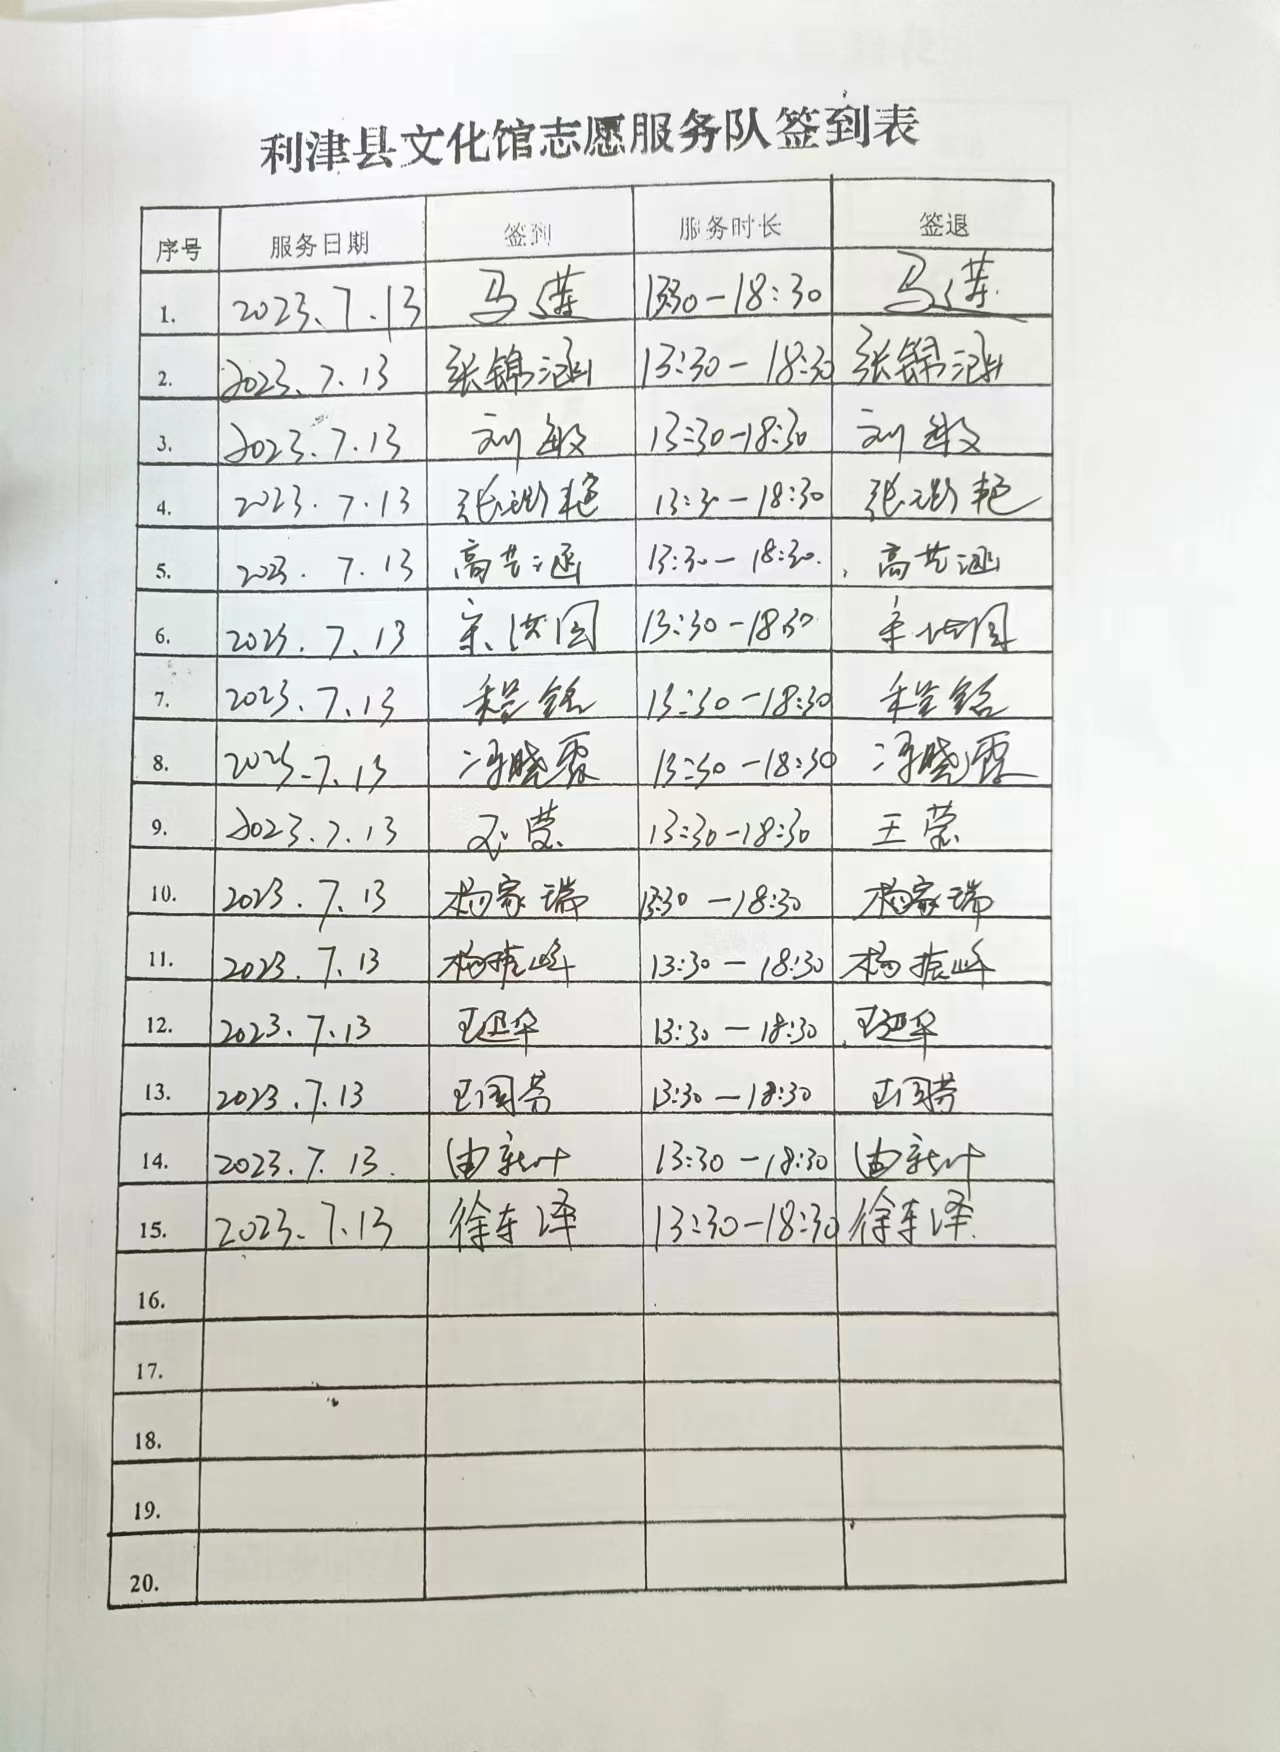 利津县文化馆志愿服务队签到表
序号 服务日期 签到 服务时长 签退
1. 2023.7.13 马莲 13:30-18:30 马莲
2. 2023.7.13 张锦涵 13:30-18:30 张锦涵
3. 2023.7.13 刘敏 13:30-18:30 刘敏
4. 2023.7.13 张 艳 13:30-18:30 张 艳
5. 2023.7.13 高艺涵 13:30-18:30 高艺涵
6. 2023.7.13 宋洪国 13:30-18:30 宋洪国
7. 2023.7.13 程铭 13:30-18:30 程铭
8. 2023.7.13 冯晓霞 13:30-18:30 冯晓霞
9. 2023.7.13 王荣 13:30-18:30 王荣
10. 2023.7.13 杨家瑞 13:30-18:30 杨家瑞
11. 2023.7.13 杨 峰 13:30-18:30 杨 峰
12. 2023.7.13 王迎华 13:30-18:30 王迎华
13. 2023.7.13 王国芬 13:30-18:30 王国芬
14. 2023.7.13. 由新叶 13:30-18:30 由新叶
15. 2023.7.13 徐东泽 13:30-18:30 徐东泽
16.
17.
18.
19.
20.